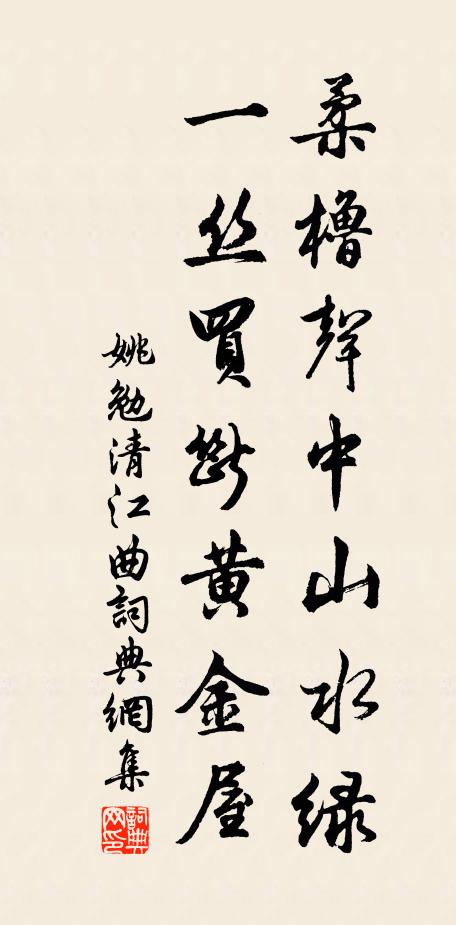 柔櫓聲中山水绿
一丝買斷黄金屋
姚勉清江曲詞典網集
詞典网印